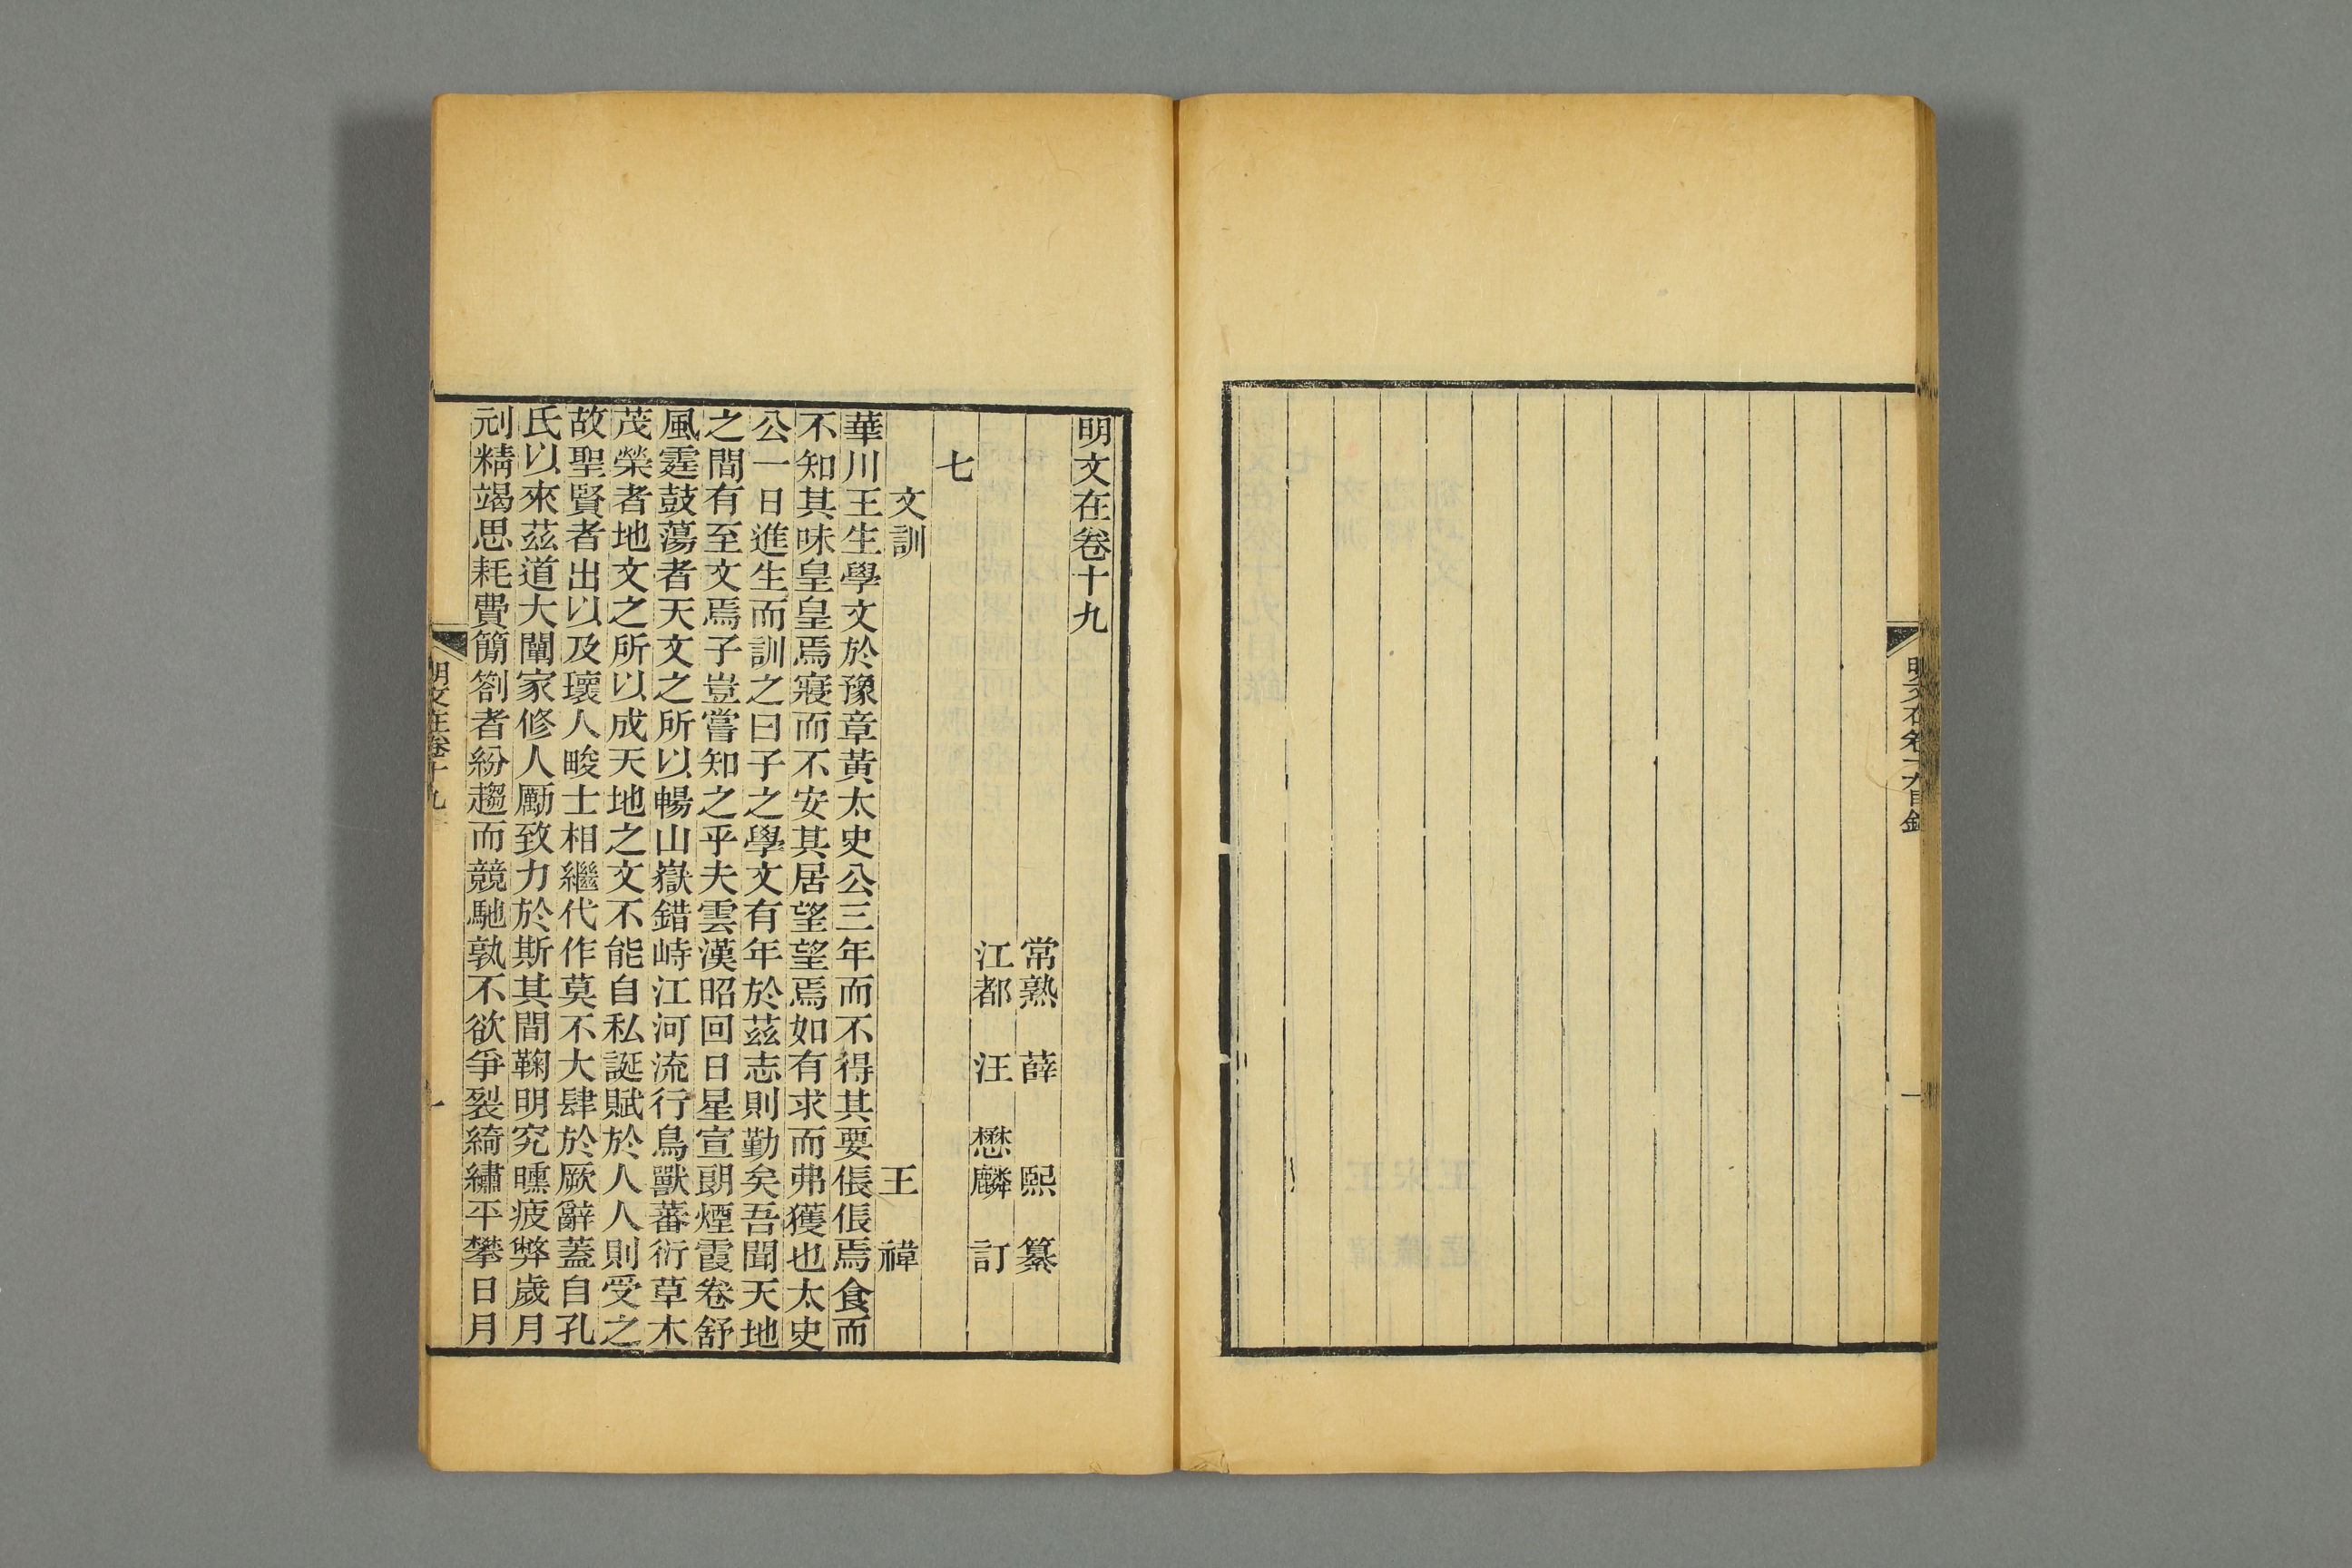 明文在卷十九目錄
一
明文在卷十九
常熟 薛 熙 纂
江都 汪 懋麟 訂
七
文訓 王 禕
華川王生學文於豫章黃太史公三年而不得其要倀倀焉食而
不知其味皇皇焉寢而不安其居望望焉如有求而弗獲也太史
公一日進生而訓之曰子之學文有年於茲志則勤矣吾聞天地
之間有至文焉子豈嘗知之乎夫雲漢昭回日星宣朗煙霞卷舒
風霆鼓蕩者天文之所以暢山嶽錯峙江河流行鳥獸蕃衍草木
茂榮者地文之所以成天地之文不能自私誕賦於人人則受之
故聖賢者出以及瓌人畯士相繼代作莫不大肆於厥辭蓋自孔
氏以來茲道大闡家修人勵致力於斯其間鞠明究曛疲弊歲月
刓精竭思耗費簡劄者紛趨而競馳孰不欲爭裂綺繡平攀日月
明文在卷十九
一